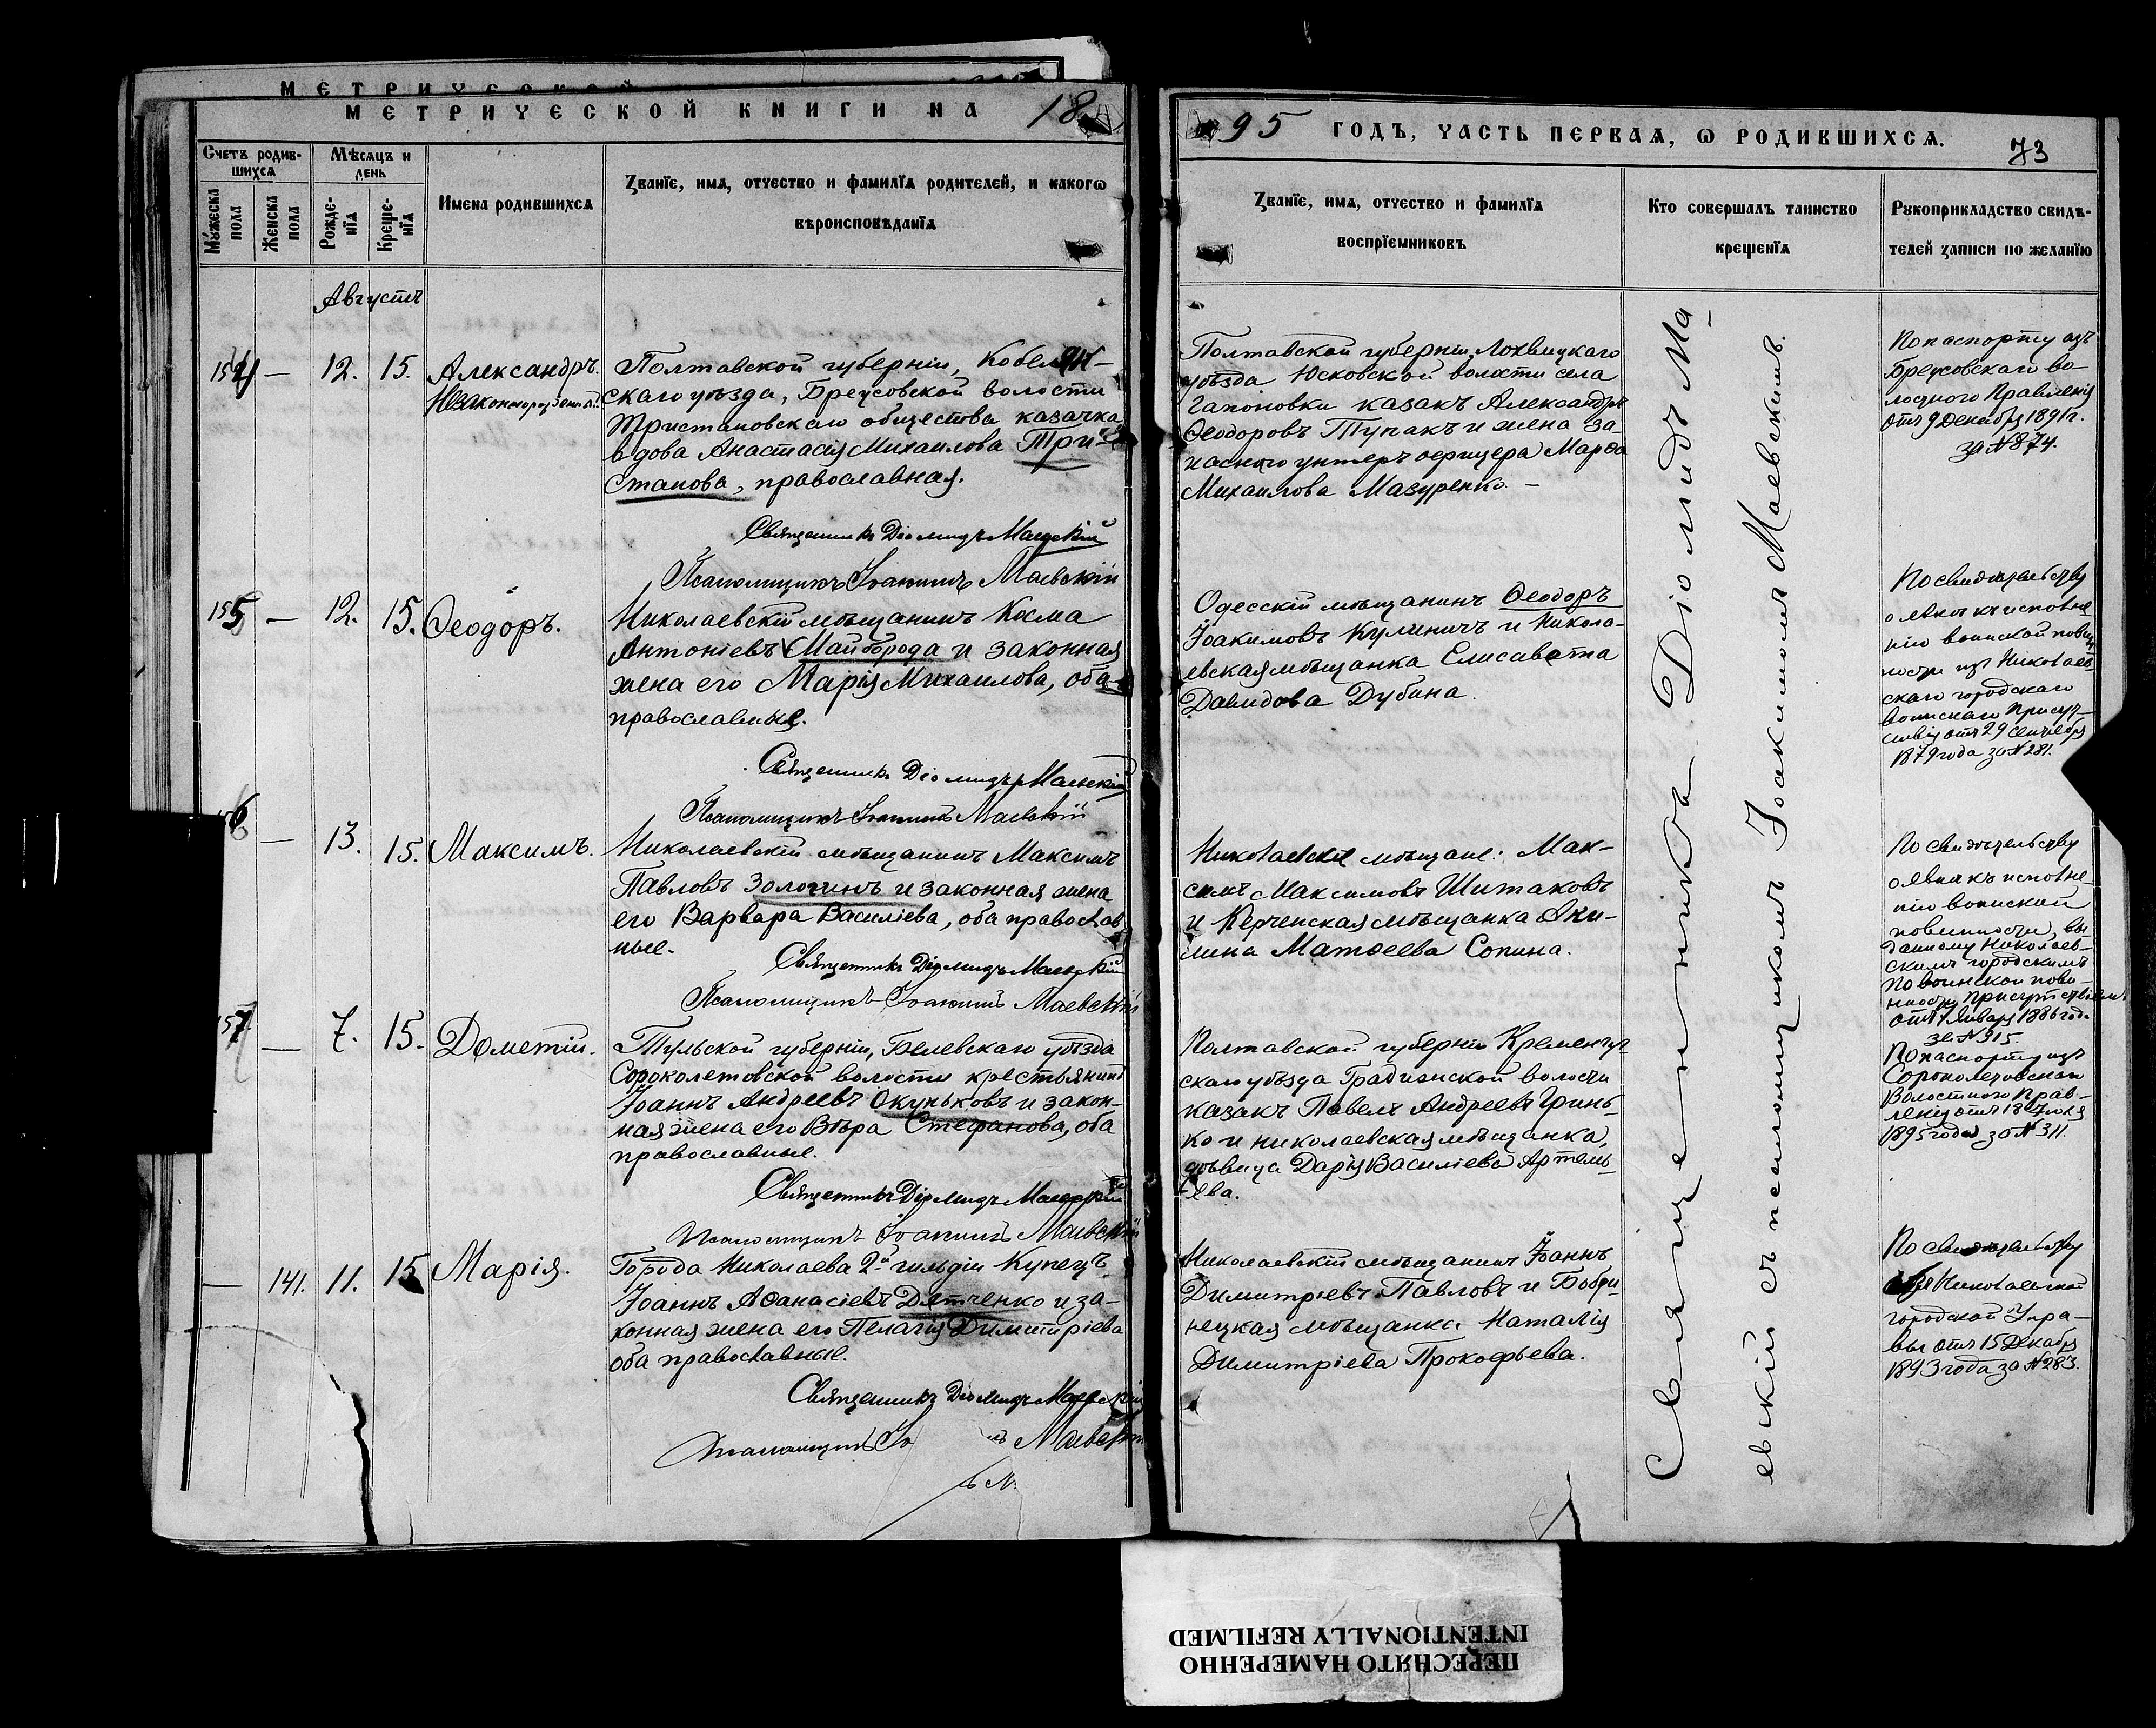 МЕТРИЧЕСКОЙ
МЕТРИЧЕСКОЙ КНИГИ НА 18
95 ГОДЪ, ЧАСТЬ ПЕРВАѦ, Ѡ РОДИВШИХСѦ.
73
Счетъ родив-
шихсѧ
Мѣсѧцъ и
день
Мужеска
пола
Женска
пола
Рожде-
нїѧ
Креще-
нїѧ
Имена родившихсѧ
Званїе, имѧ, отчество и фамилїѧ родителей, и какогѡ
вѣроисповѣданїѧ
Званїе, имѧ, отчество и фамилїѧ
воспрїемниковъ
Кто совершалъ таинство
крещенїѧ
Рукоприкладство свидѣ-
телей записи по желанїю
Августъ
154 — 12. 15. Александръ.
Незаконнорожденный
Полтавской губерніи, Кобеляк-
скаго уѣзда, Бреусовской волости
Тристановскаго общества казачка
вдова Анастасія Михаилова Три-
станова, православная.
Священникъ Діомидъ Маевскій
Псаломщикъ Іоакимъ Маевскій
Полтавской губерніи Лохвицкаго
уѣзда Юсковской волости села
Гапоновки казакъ Александръ
Ѳеодоровъ Тупакъ и жена за-
паснаго унтеръ офицера Марѳа
Михаилова Мазуренко. —
По паспорту изъ
Бреусовскаго во-
лостного Правленія
отъ 9 Декабря 1891 г.
за № 874.
155 — 12. 15. Ѳеодоръ.
Николаевскій мѣщанинъ Косма
Антоніевъ Майборода и законная
жена его Марія Михаилова, оба
православные.
Священникъ Діомидъ Маевскій
Псаломщикъ Іоакимъ Маевскій
Одесскій мѣщанинъ Ѳеодоръ
Іоакимовъ Кулиничъ и Никола-
евская мѣщанка Елисавета
Давидова Дубина.
По свидѣтельству
о явкѣ къ исполне
нію воинской повин
ности изъ Николаев-
скаго городскаго
воинскаго Присут-
ствія отъ 29 Сентября
1879 года за № 281.
156 — 13. 15. Максимъ.
Николаевскій мѣщанинъ Максимъ
Павловъ Золотинъ и законная жена
его Варвара Василіева, оба православ
ные.
Священникъ Діомидъ Маевскій
Псаломщикъ Іоакимъ Маевскій
Николаевскіе мѣщане: Мак-
симъ Максимовъ Шитаковъ
и Керченская мѣщанка Аки-
лина Матѳеева Сопина.
По свидѣтельству
о явкѣ къ исполне-
нію воинской
повинности, вы-
данному Николаев-
скимъ городскимъ
по воинской пови-
нности присутствіемъ
отъ 7 Января 1886 года
за № 315.
157 — 7. 15. Дометій.
Тульской губерніи, Белевскаго уѣзда
Сороколетовской волости крестьянинъ
Іоаннъ Андреевъ Окуньковъ и закон-
ная жена его Вѣра Стефанова, оба
православные.
Священникъ Діомидъ Маевскій
Псаломщикъ Іоакимъ Маевскій
Полтавской губерніи Кременчуг-
скаго уѣзда Градижской волости
казакъ Павелъ Андреевъ Гринь-
ко и николаевская мѣщанка,
дѣвица Дарія Василіева Артемь-
ева.
По паспорту изъ
Сороколетовскаго
Волостного Прав-
ленія отъ 18 Іюля
1895 года за № 311.
— 141. 11. 15 Марія.
Города Николаева 2й гильдіи Купецъ
Іоаннъ Аѳанасіевъ Дятченко и за-
конная жена его Пелагія Димитріева
оба православные.
Священникъ Діомидъ Маевскій
Псаломщикъ Маевскій
Николаевскій мѣщанинъ Іоаннъ
Димитріевъ Павловъ и Бобри-
нецкая мѣщанка Наталія
Димитріева Прокофьева.
По свидѣтельству
изъ Николаевской
городской Упра-
вы отъ 15 Декабря
1893 года за № 283.
Священникъ Діомидъ Ма-
евскій съ псаломщикомъ Іоакимомъ Маевскимъ.
ПЕРЕСНЯТО НАМЕРЕННО
INTENTIONALLY REFILMED